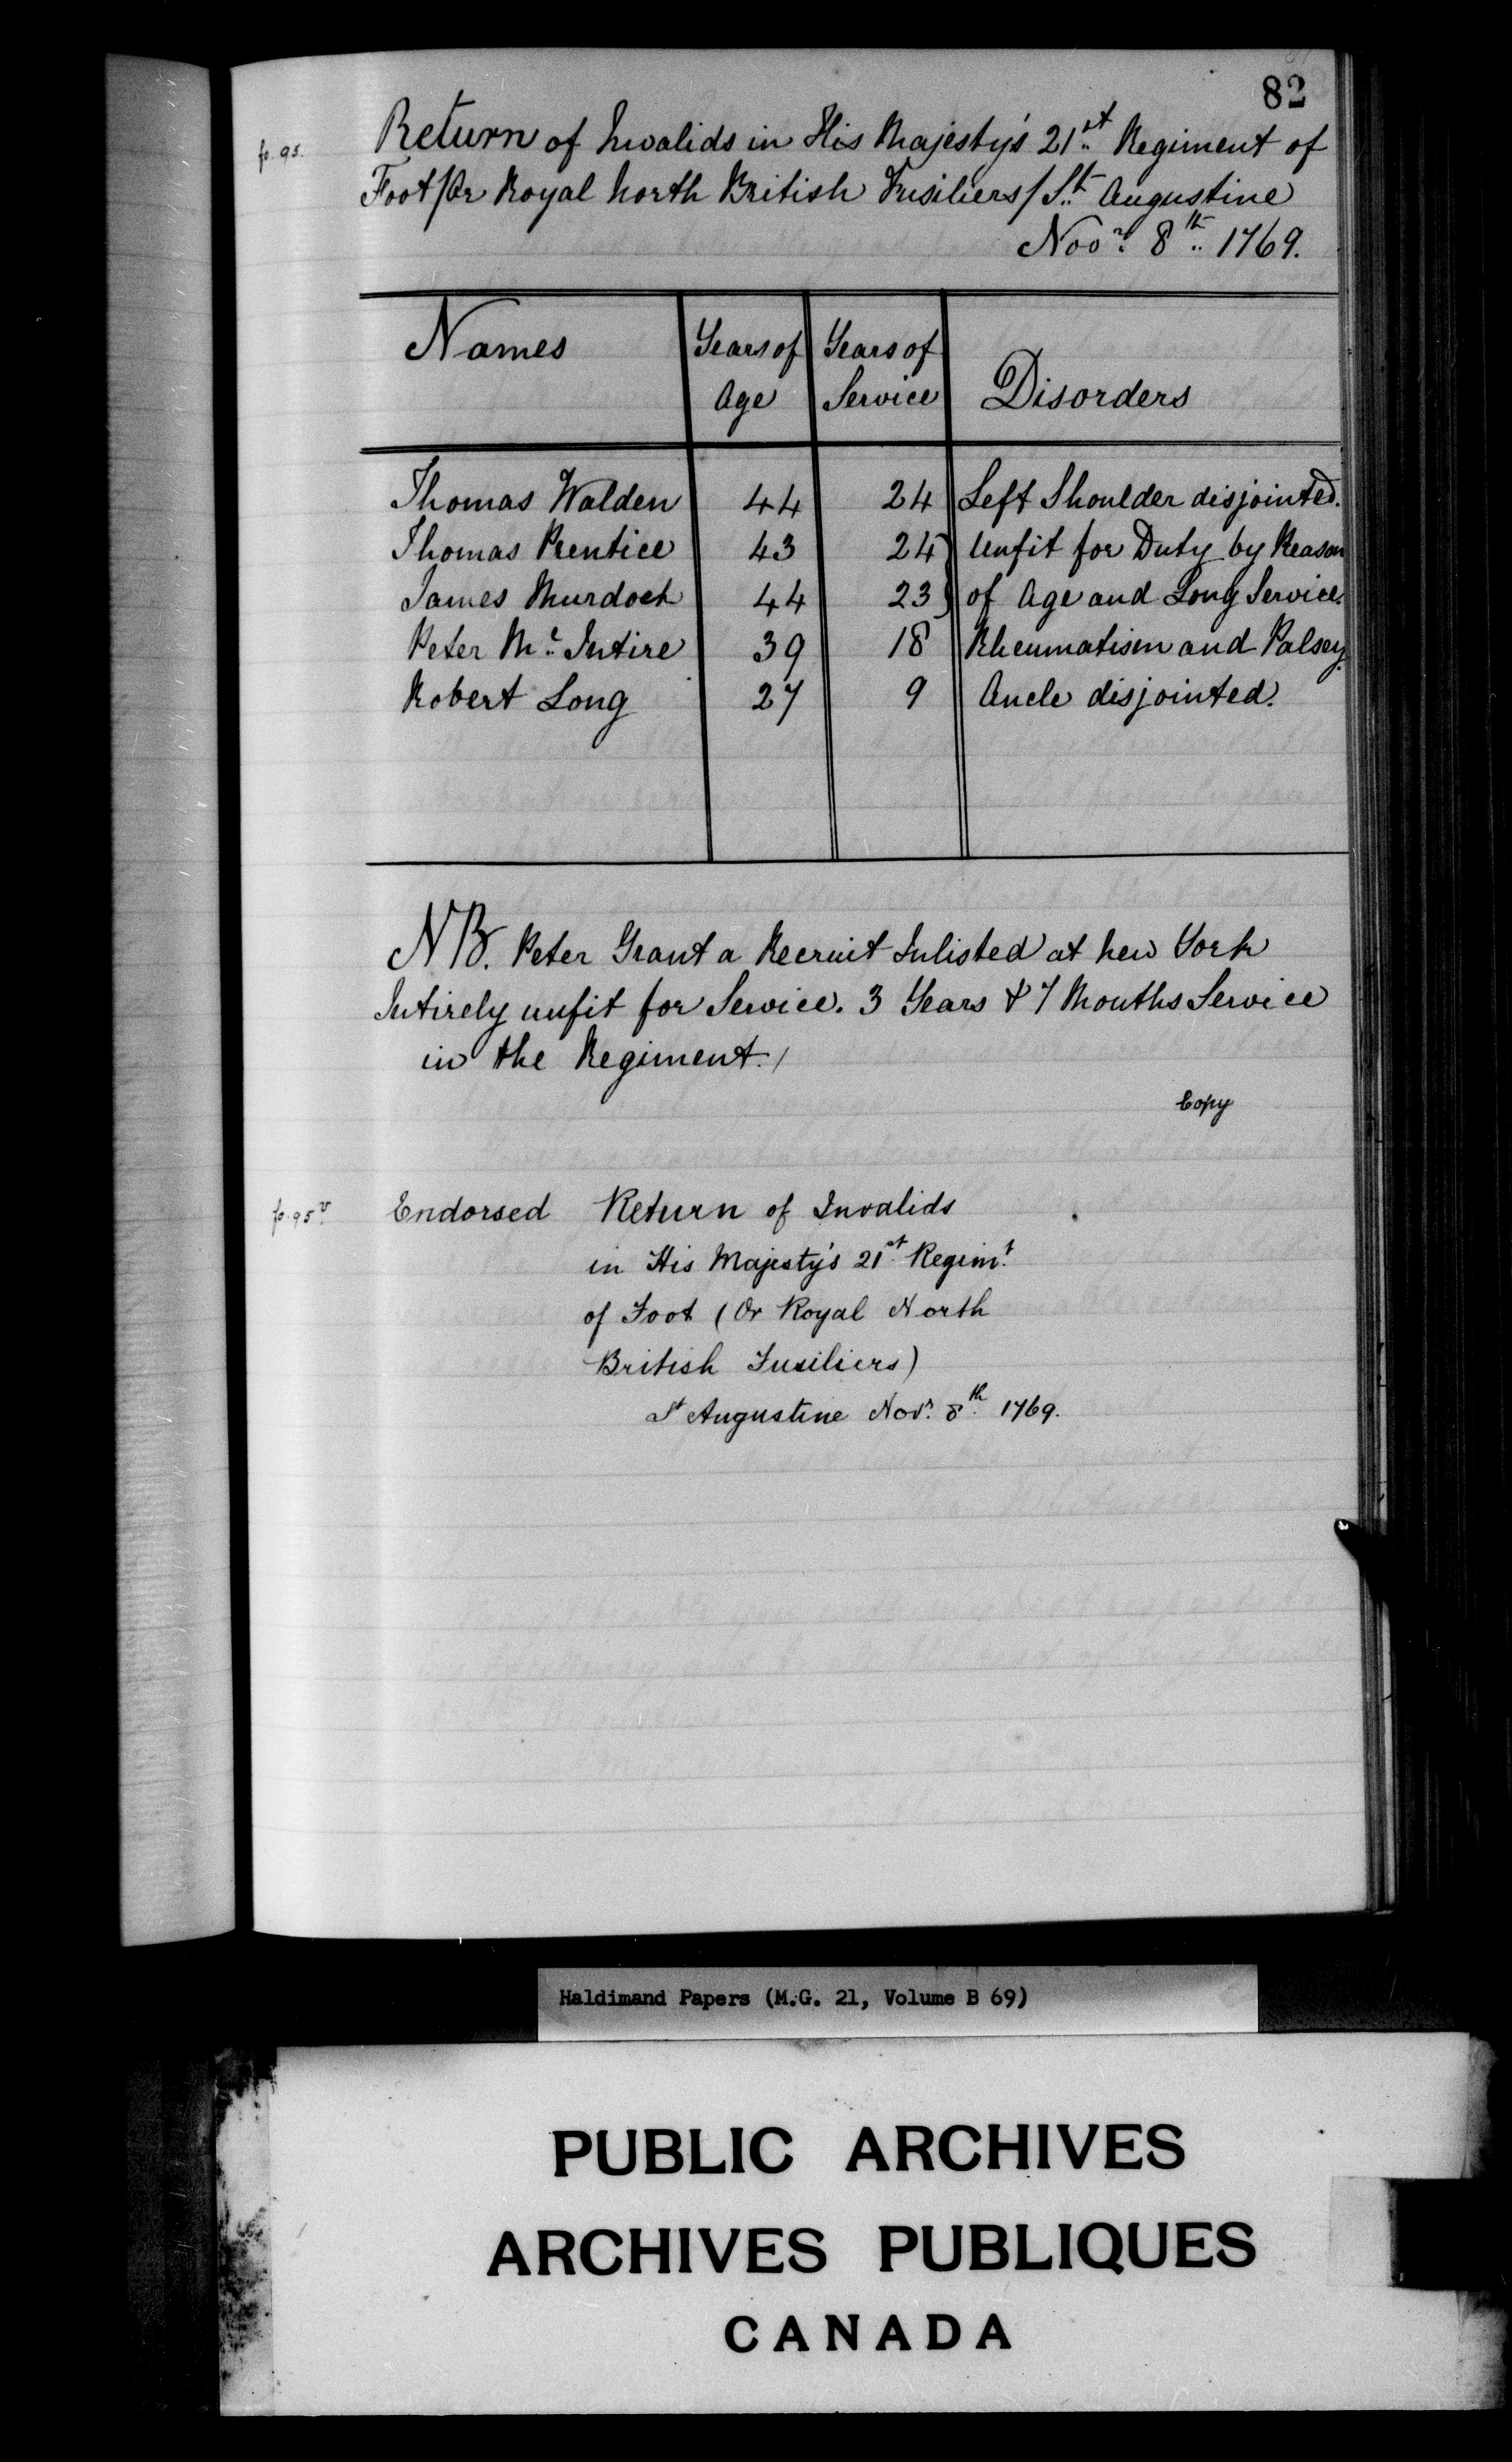 82
fo. 95. Return of Invalids in His Majesty's 21st Regiment of
Foot/Or Royal North British Fusiliers/St. Augustine
Novr. 8th. 1769.
Names Years of Age Years of Service Disorders
Thomas Walden 44 24 Left Shoulder disjointed.
Thomas Prentice 43 24 } Unfit for Duty by Reason
James Murdoch 44 23 } of Age and Long Service.
Peter Mc. Intire 39 18 Rheumatism and Palsey
Robert Long 27 9 Ancle disjointed.
NB. Peter Grant a Recruit Inlisted at New York
Intirely unfit for Service. 3 Years & 7 Months Service
in the Regiment./
Copy
fo. 95v. Endorsed Return of Invalids
in His Majesty's 21st Regimt.
of Foot (Or Royal North
British Fusiliers)
St Augustine Novr. 8th. 1769.
Haldimand Papers (M.G. 21, Volume B 69)
PUBLIC ARCHIVES
ARCHIVES PUBLIQUES
CANADA